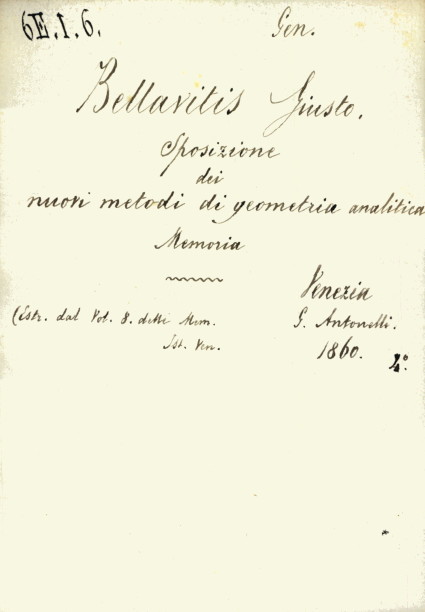 6E.I.6. Gen.
Bellavitis Giusto.
Sposizione
dei
nuovi metodi di geometria analitica
Memoria
Venezia
(Estr. dal Vol. 8. delle Mem. G. Antonelli.
Ist. Ven. 1860. 4º.